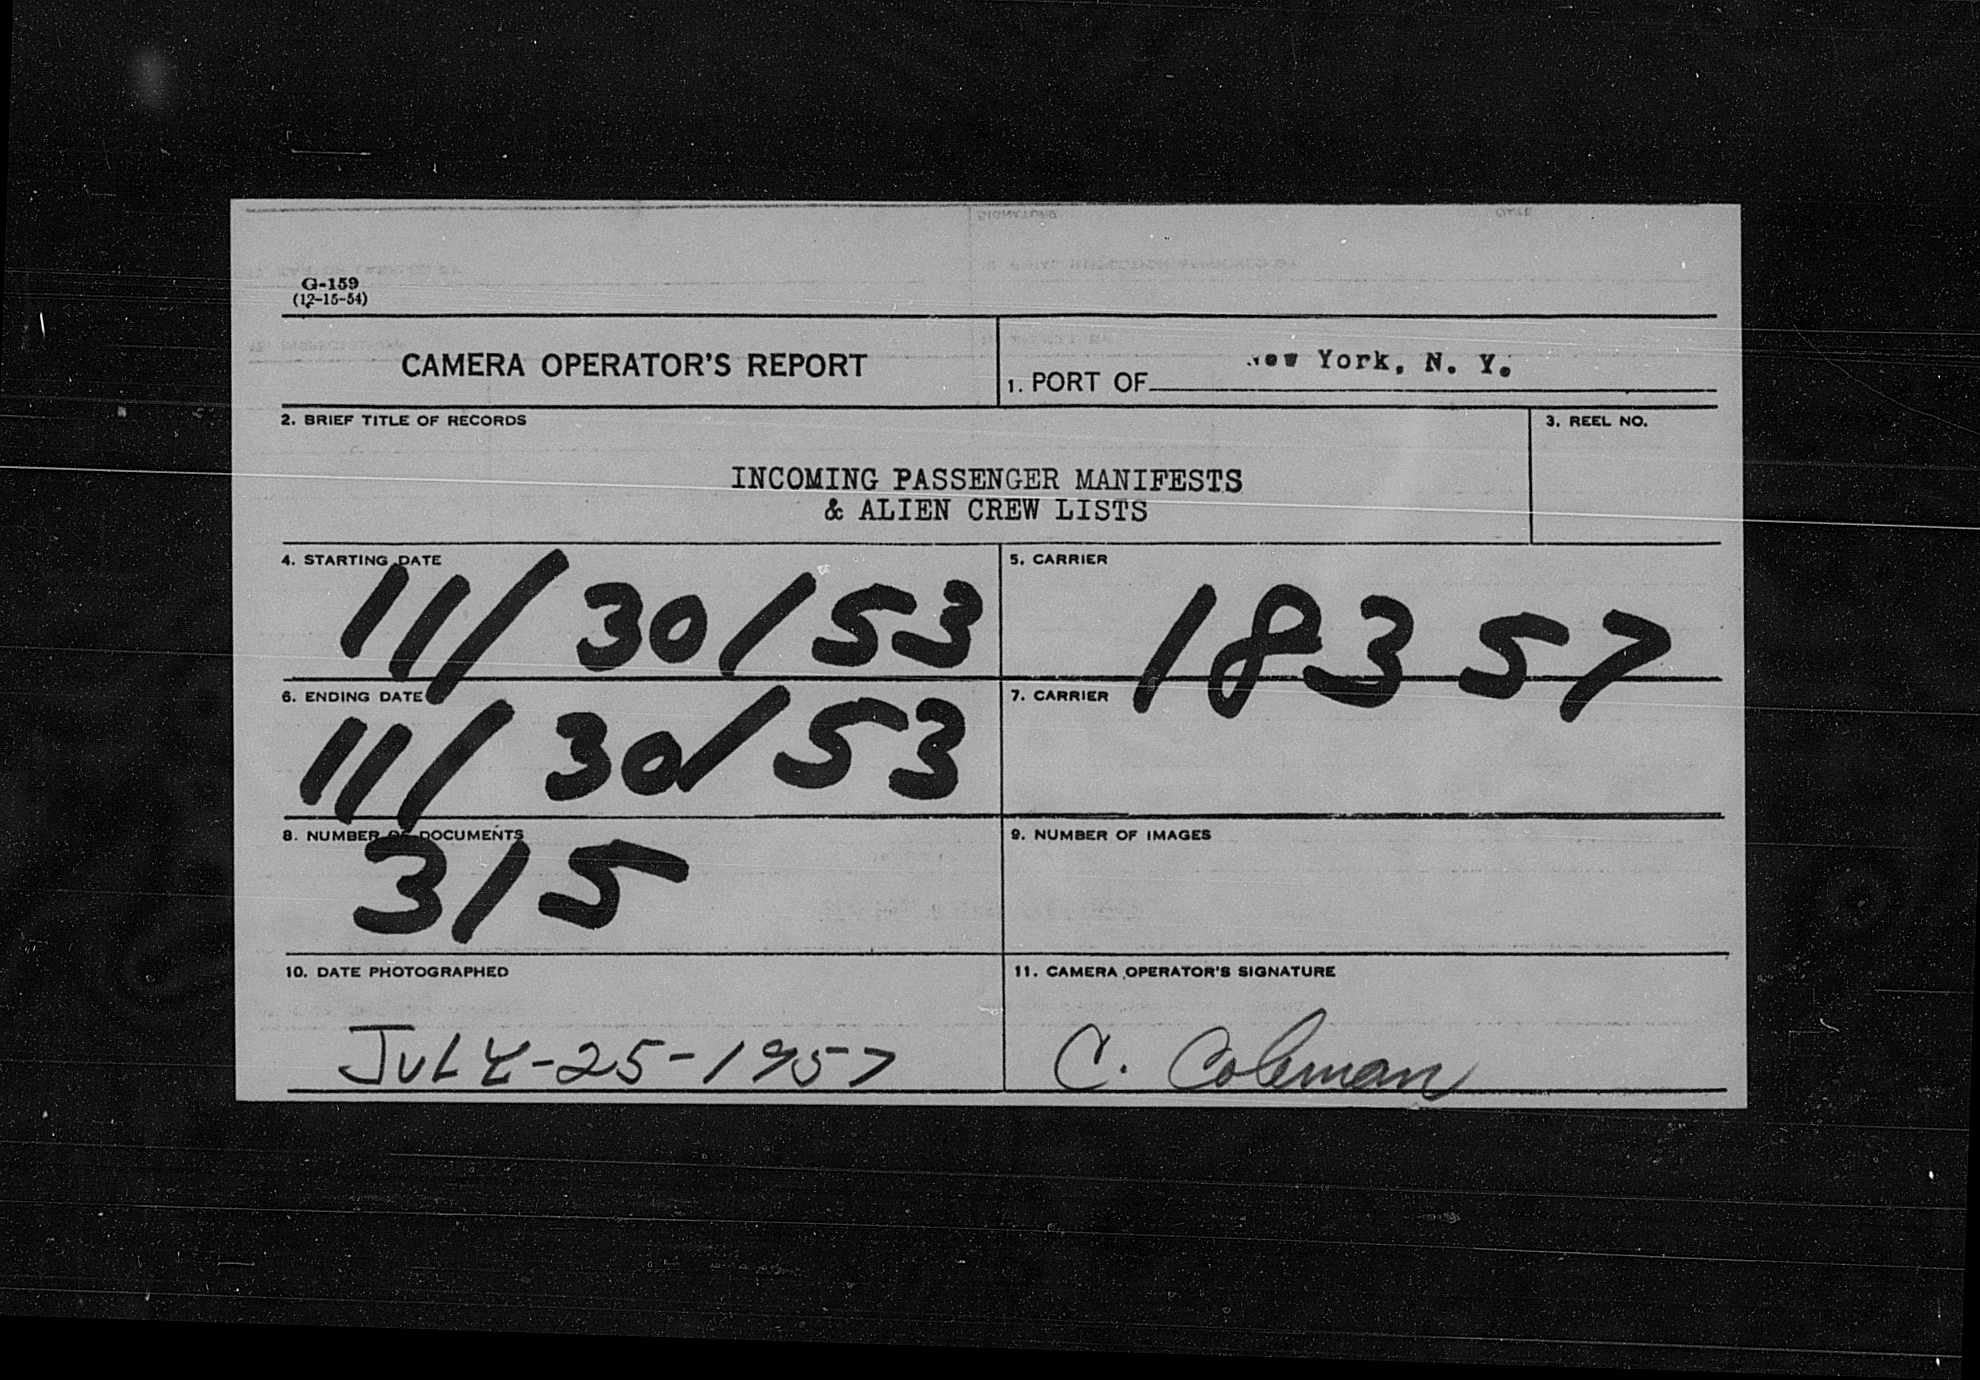 G-159
(12-15-54)
CAMERA OPERATOR'S REPORT
1. PORT OF New York, N. Y.
2. BRIEF TITLE OF RECORDS
3. REEL NO.
INCOMING PASSENGER MANIFESTS
& ALIEN CREW LISTS
4. STARTING DATE
11/30/53
5. CARRIER
18357
6. ENDING DATE
11/30/53
7. CARRIER
8. NUMBER OF DOCUMENTS
315
9. NUMBER OF IMAGES
10. DATE PHOTOGRAPHED
JULY-25-1957
11. CAMERA OPERATOR'S SIGNATURE
C. Coleman